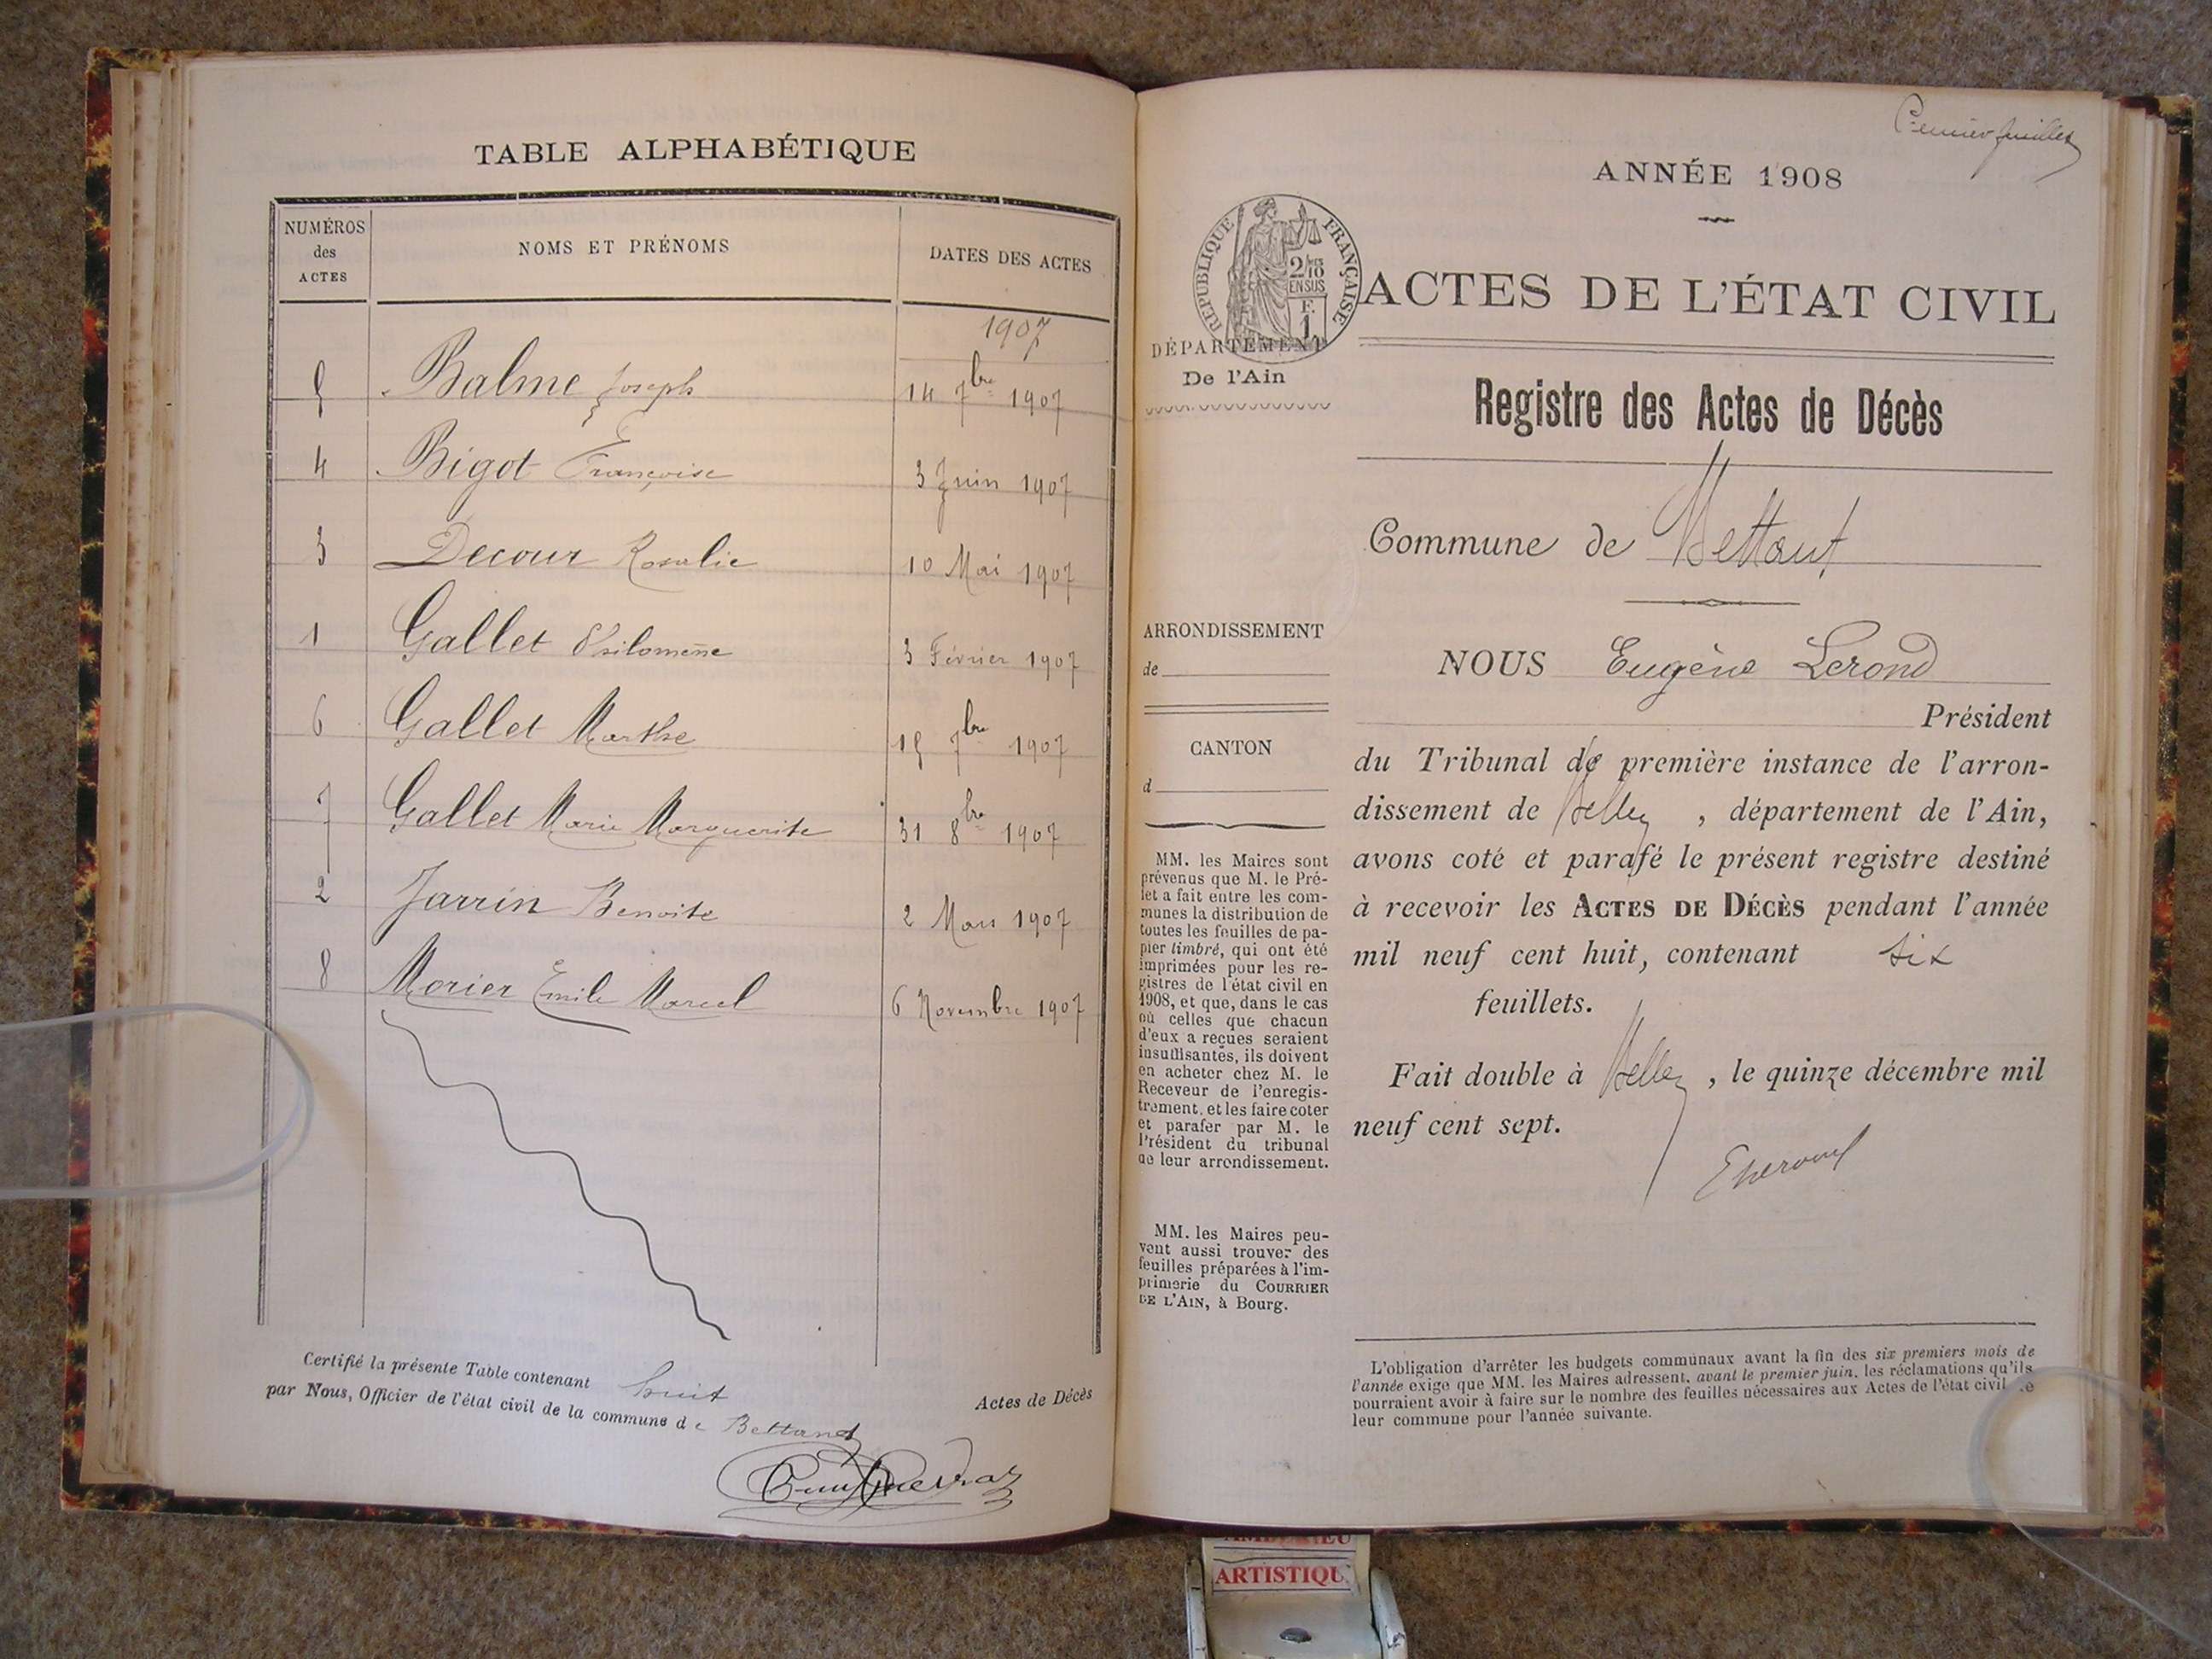 TABLE ALPHABÉTIQUE
NUMÉROS des ACTES NOMS ET PRÉNOMS DATES DES ACTES
1907
5 Balme Joseph 14 7bre 1907
4 Bigot Françoise 3 Juin 1907
3 Decour Rosalie 10 Mai 1907
1 Gallet Philomène 3 Février 1907
6 Gallet Marthe 15 7bre 1907
7 Gallet Marie Marguerite 31 8bre 1907
2 Jarrin Benoite 2 Mars 1907
8 Morier Emile Marcel 6 Novembre 1907
Certifié la présente Table contenant huit Actes de Décès
par Nous, Officier de l'état civil de la commune de Bettant
Premier feuillet
ANNÉE 1908
RÉPUBLIQUE FRANÇAISE
2/10
EN SUS
F.
1
ACTES DE L'ÉTAT CIVIL
DÉPARTEMENT
De l'Ain
Registre des Actes de Décès
Commune de Bettant
ARRONDISSEMENT
de
CANTON
d
NOUS Eugène Lerond
Président
du Tribunal de première instance de l'arron-
dissement de Belley, département de l'Ain,
avons coté et parafé le présent registre destiné
à recevoir les ACTES DE DÉCÈS pendant l'année
mil neuf cent huit, contenant six
feuillets.
Fait double à Belley, le quinze décembre mil
neuf cent sept.
MM. les Maires sont
prévenus que M. le Pré-
fet a fait entre les com-
munes la distribution de
toutes les feuilles de pa-
pier timbré, qui ont été
imprimées pour les re-
gistres de l'état civil en
1908, et que, dans le cas
où celles que chacun
d'eux a reçues seraient
insuffisantes, ils doivent
en acheter chez M. le
Receveur de l'enregis-
trement, et les faire coter
et parafer par M. le
Président du tribunal
de leur arrondissement.
MM. les Maires peu-
vent aussi trouver des
feuilles préparées à l'im-
primerie du COURRIER
DE L'AIN, à Bourg.
L'obligation d'arrêter les budgets communaux avant la fin des six premiers mois de
l'année exige que MM. les Maires adressent, avant le premier juin, les réclamations qu'ils
pourraient avoir à faire sur le nombre des feuilles nécessaires aux Actes de l'état civil de
leur commune pour l'année suivante.
ARTISTIQU